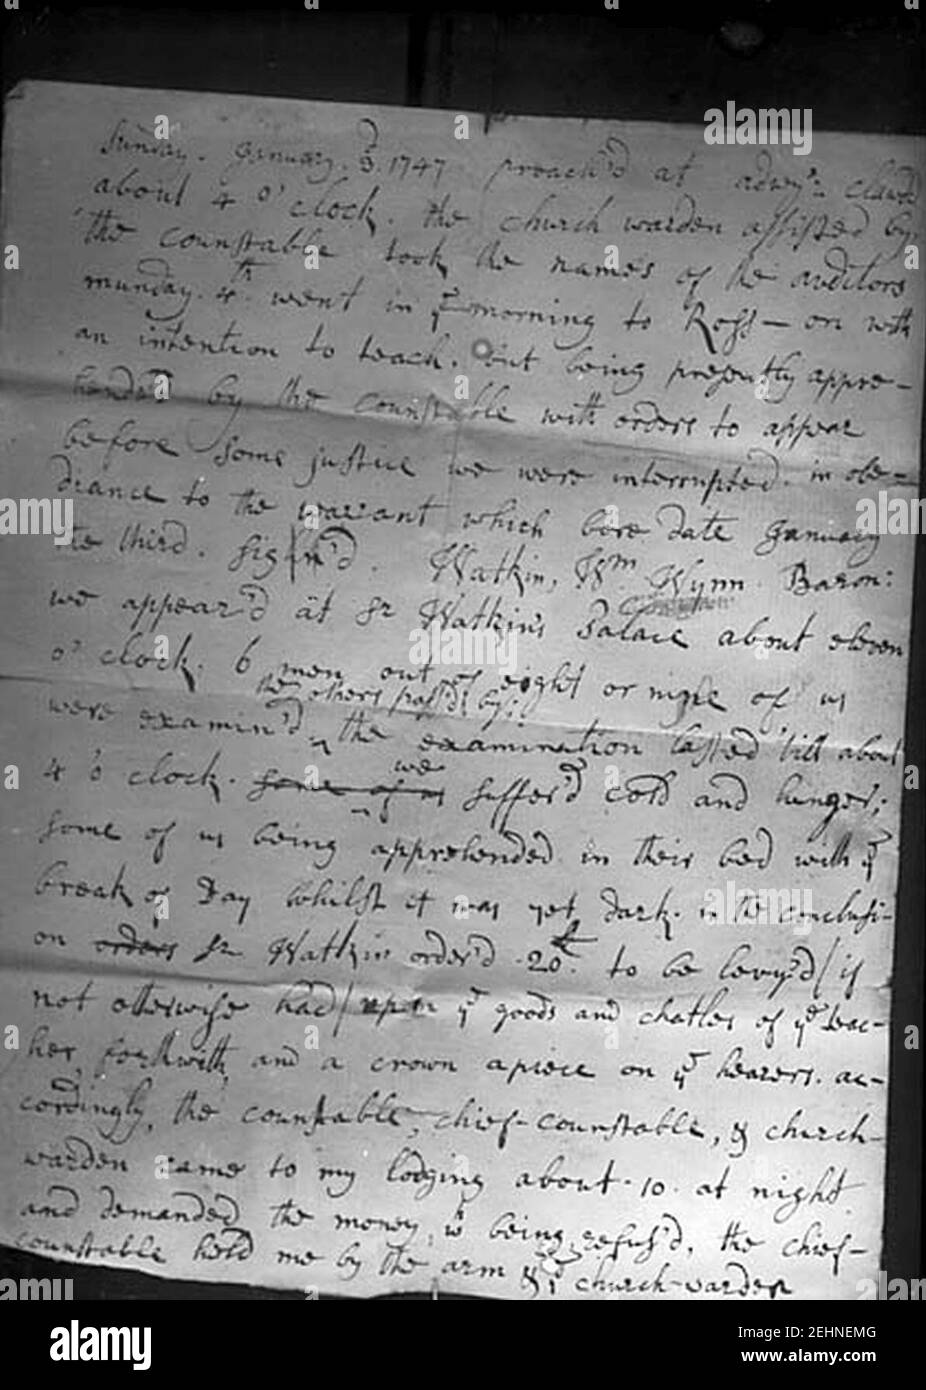 Sunday. January. 3. 1747 proach'd at adwy'r clawd
about 4 o'clock. the church warden assisted by
the counstable took the names of the auditors
munday. 4th. went in yᵉ morning to Ross- on with
an intention to teach. but being presently appre-
hended by the counstable with orders to appear
before some justice we were interrupted. in obe-
diance to the warant which bore date January
the third. sign'd. Watkin, Wm Wynn. Baron:
we appear'd at Sr Watkin's Palace about eleven
o'clock. 6 men out of eight or nine of us
the others pass'd by:
were examin'd, the examination lasted 'till about
we
4 'o clock. some of us suffer'd cold and hunger;
some of us being apprehended in their bed with yᵉ
break of Day whilst it was yet dark. in the conclusi-
on orders Sr Watkin order'd .20£. to be levy'd / if
not otherwise had / upon yᵉ goods and chatles of yᵉ teac-
her, forthwith, and a crown a piece on yᵉ hearers. ac-
cordingly, the counstable, chief-counstable, & church-
warden came to my lodging about .10. at night
and demanded the money, wᶜʰ being refus'd, the chief-
counstable held me by the arm & yᵉ church-warden
alamy
Image ID: 2EHNEMG
www.alamy.com